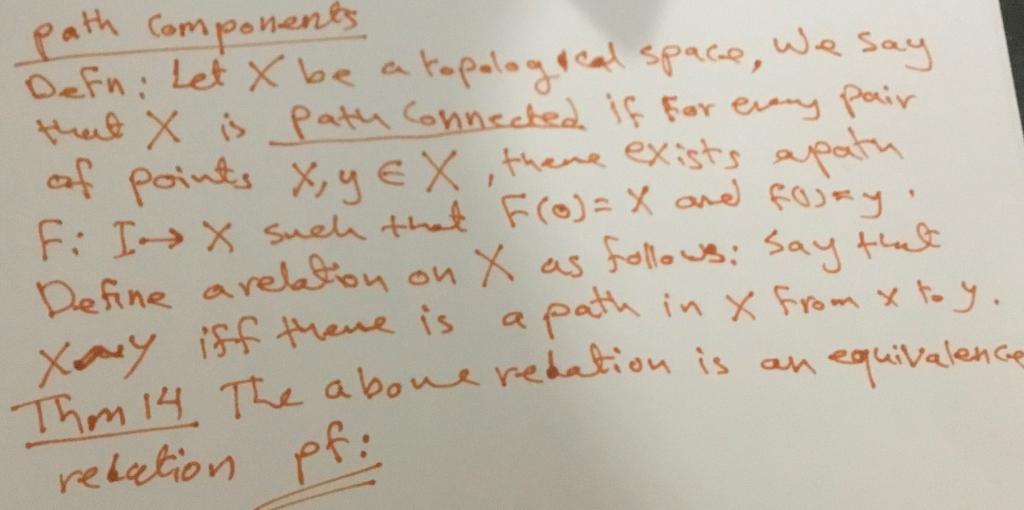 path Components
Defn: Let X be a topological space, We say
that X is path Connected if for every pair
of points x, y ∈ X, there exists a path
F: I → X such that F(0) = x and f(1) = y.
Define a relation on X as follows: Say that
x ~ y iff there is a path in X from x to y.
Thm 14 The above relation is an equivalence
relation pf: